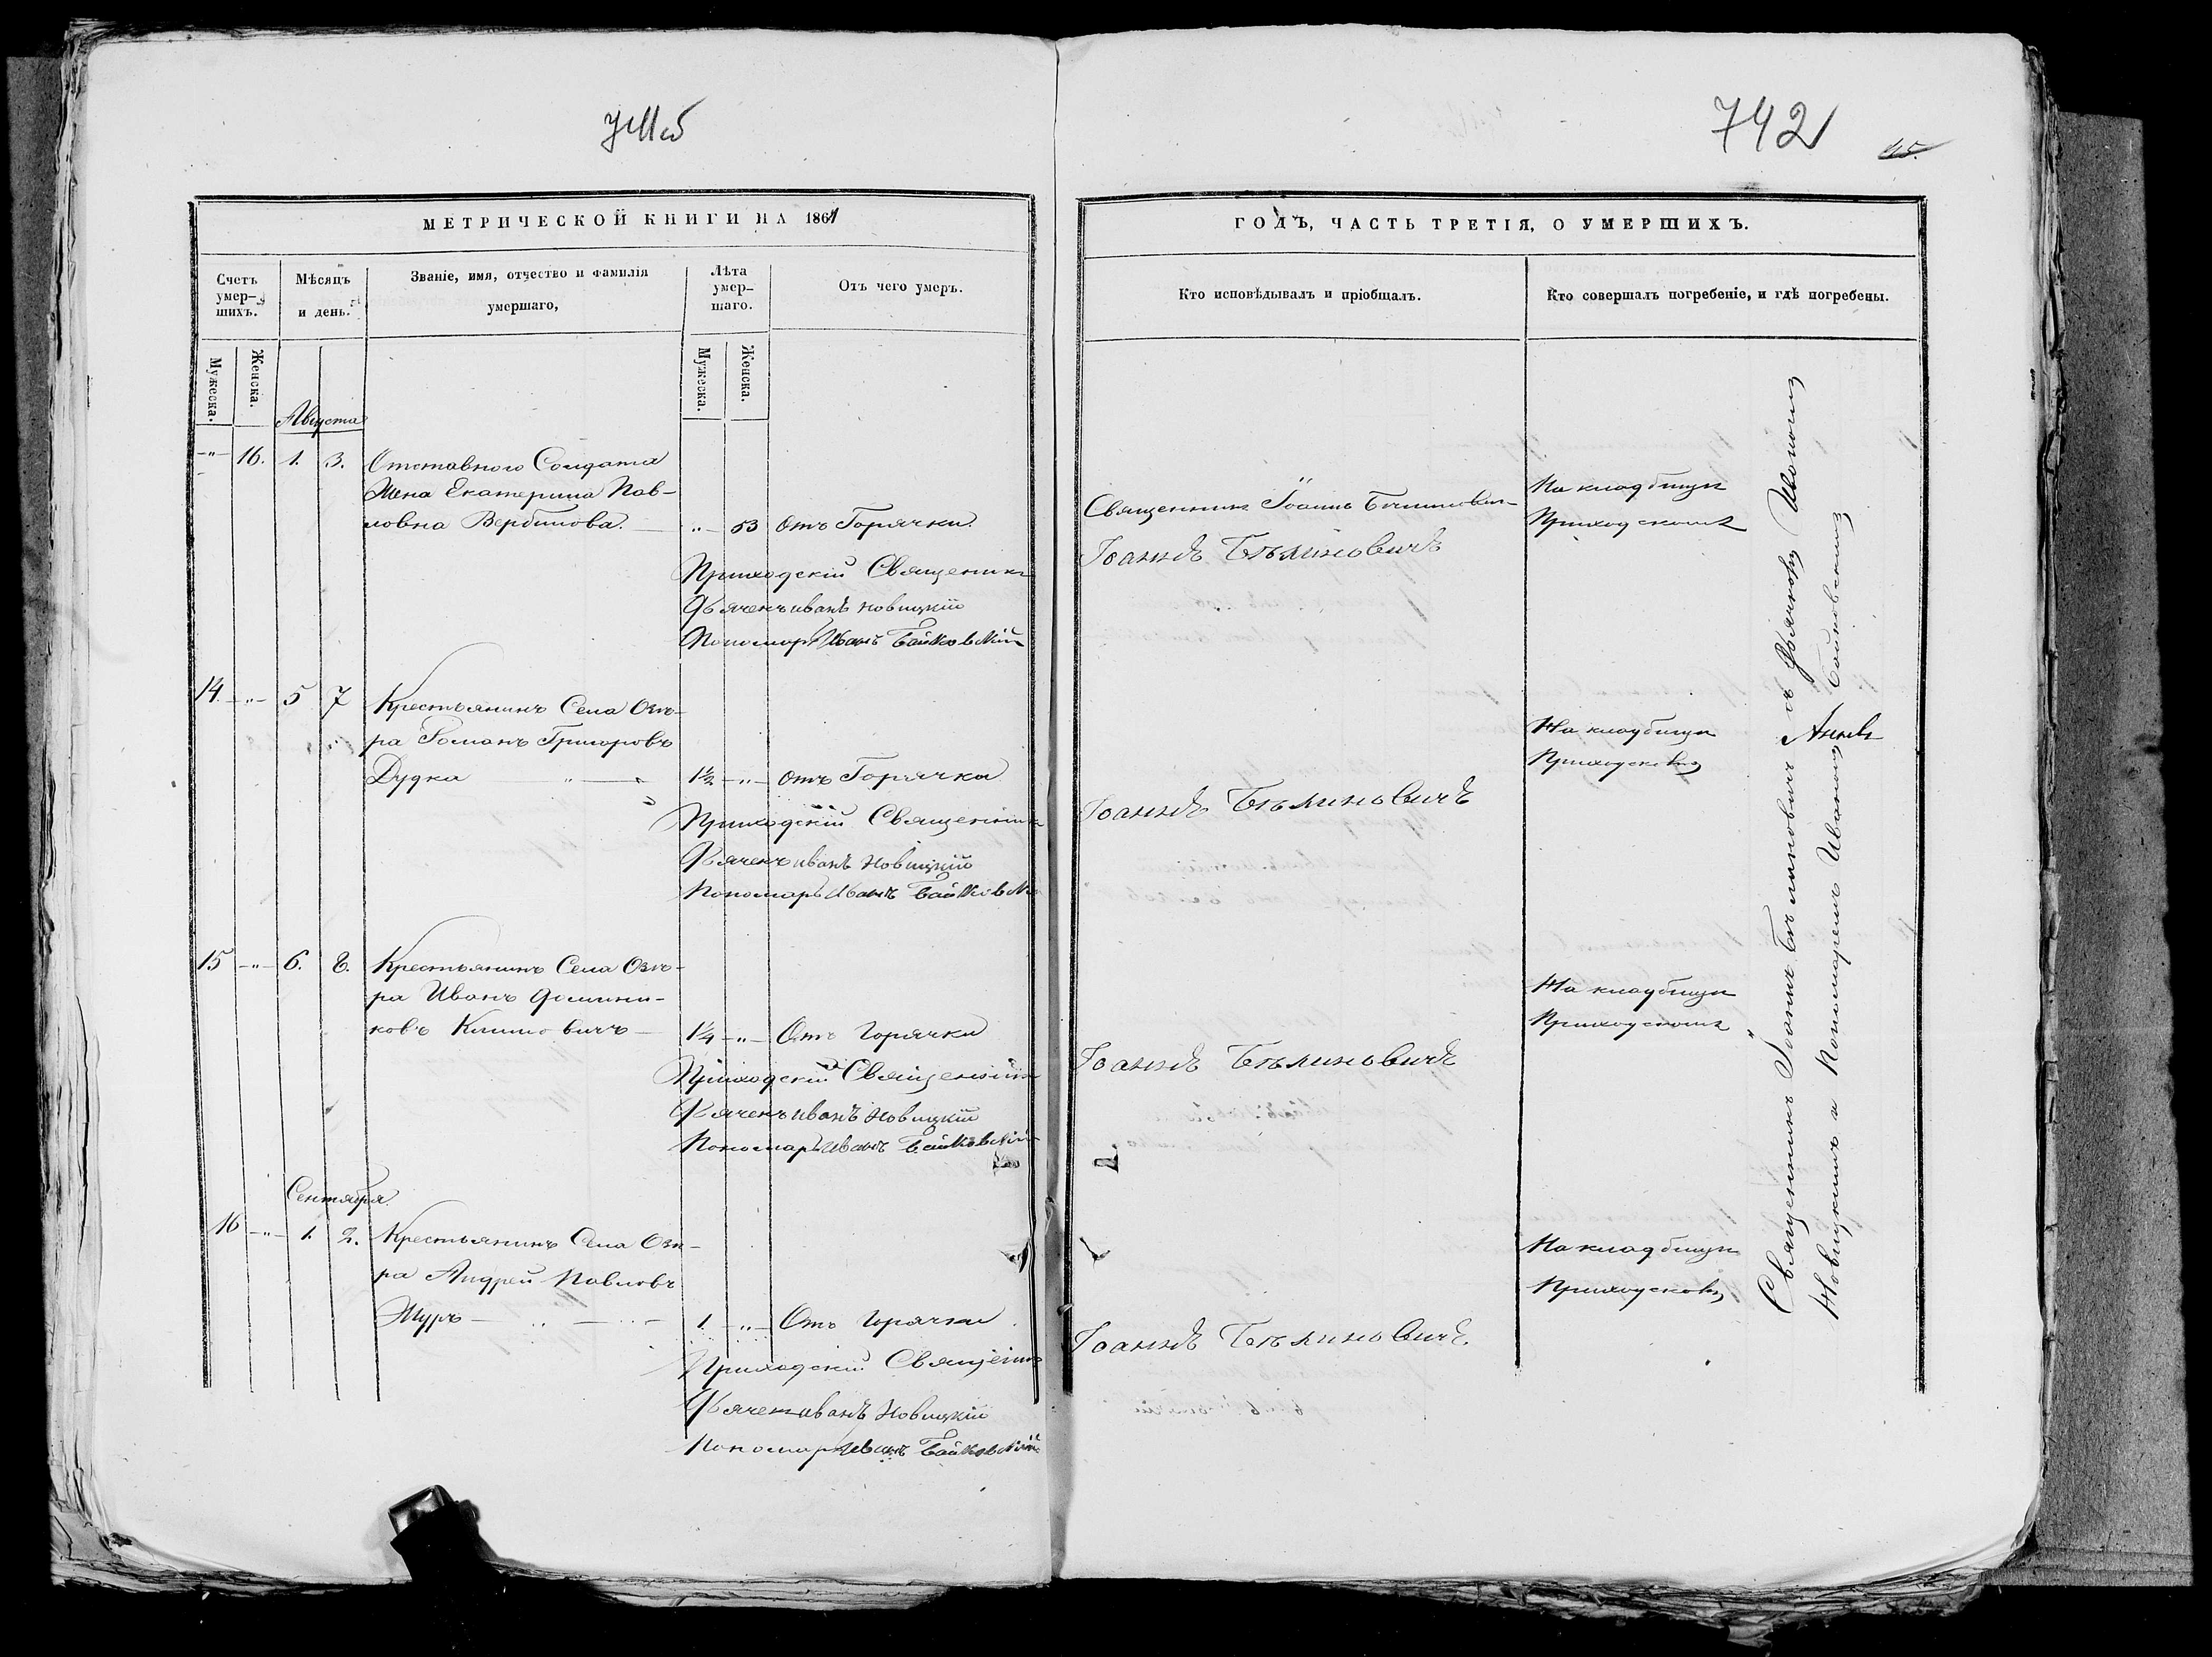 742
МЕТРИЧЕСКОЙ КНИГИ НА 1861
ГОДЪ, ЧАСТЬ ТРЕТІЯ, О УМЕРШИХЪ.
Счетъ умер-шихъ.
Мѣсяцъ и день.
Званіе, имя, отчество и фамилія умершаго,
Лѣта умер-шаго.
Отъ чего умеръ.
Кто исповѣдывалъ и пріобщалъ.
Кто совершалъ погребеніе, и гдѣ погребены.
Мужеска.
Женска.
Мужеска.
Женска.
Августа
16. 1. 3. Отставного Солдата
Жена Екатерина Пав-
ловна Вербилова. 53 Отъ Горячки.
Священникъ Іоаннъ
На кладбищи
Приходскомъ
Приходскій Священникъ Іоаннъ Бѣлиновичъ
Дьячекъ иванъ новицкій
Пономарь Иванъ Байковскій
14. 5 7 Крестьянинъ Села Озе-
ра Романъ Григоровъ
Дудка 1½ отъ Горячки
На кладбищи
Приходскомъ
Приходскій Священникъ Іоаннъ Бѣлиновичъ
Дьячекъ иванъ Новицкій
Пономарь Иванъ Байковскій
15 6. 8. Крестьянинъ Села Озе-
ра Иванъ Домини-
ковъ Климовичъ 1¼ Отъ Горячки
На кладбищи
Приходскомъ
Приходскій Священникъ Іоаннъ Бѣлиновичъ
Дьячекъ иванъ Новицкій
Пономарь Иванъ Байковскій
Сентября
16 1. 2. Крестьянинъ Села Озе-
ра Андрей Павловъ
Журъ 1 Отъ Горячки
На кладбищи
Приходскомъ
Приходскій Священникъ Іоаннъ Бѣлиновичъ
Дьячекъ иванъ Новицкій
Пономарь Иванъ Байковскій
Священникъ Іоаннъ Бѣлиновичъ съ Дьячкомъ Иваномъ
Новицкимъ и Пономаремъ Иваномъ Байковскимъ